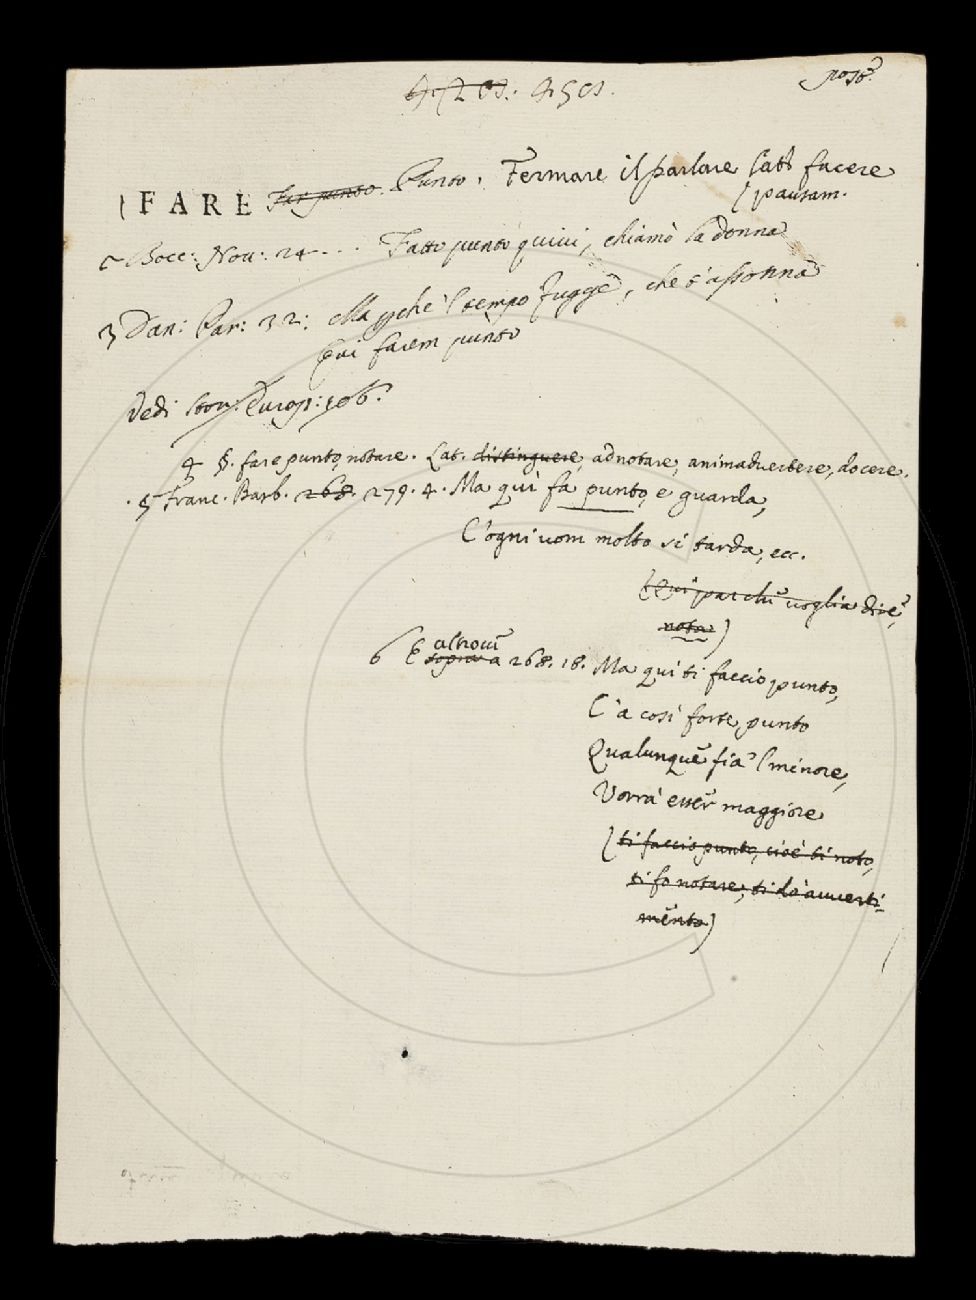 4501.
FARE Far punto. Punto. Fermare il parlare Latt facere
pausam.
Bocc: Nou: 24... Fatto punto quiui, chiamò la donna
3 Dan: Par: 32: Ma pchè 'l tempo fugge, che t'assonna
Qui farem punto
Vedi Stor: Europ: 106.
4 §. fare punto, notare. Lat. distinguere, adnotare, animaduertere, docere.
5 Franc. Barb. 268. 279. 4. Ma quì fa punto, e guarda,
C'ogni uom molto si tarda, ecc.
(Qui par ch' uoglia dire,
nota)
altroue
6 E sopra a 268. 18. Ma qui ti faccio punto,
C'a così forte punto
Qualunque fia 'l minore,
Vorrà esser maggiore
(ti faccio punto, cioè ti noto,
ti fo notare, ti do auuerti-
mento)